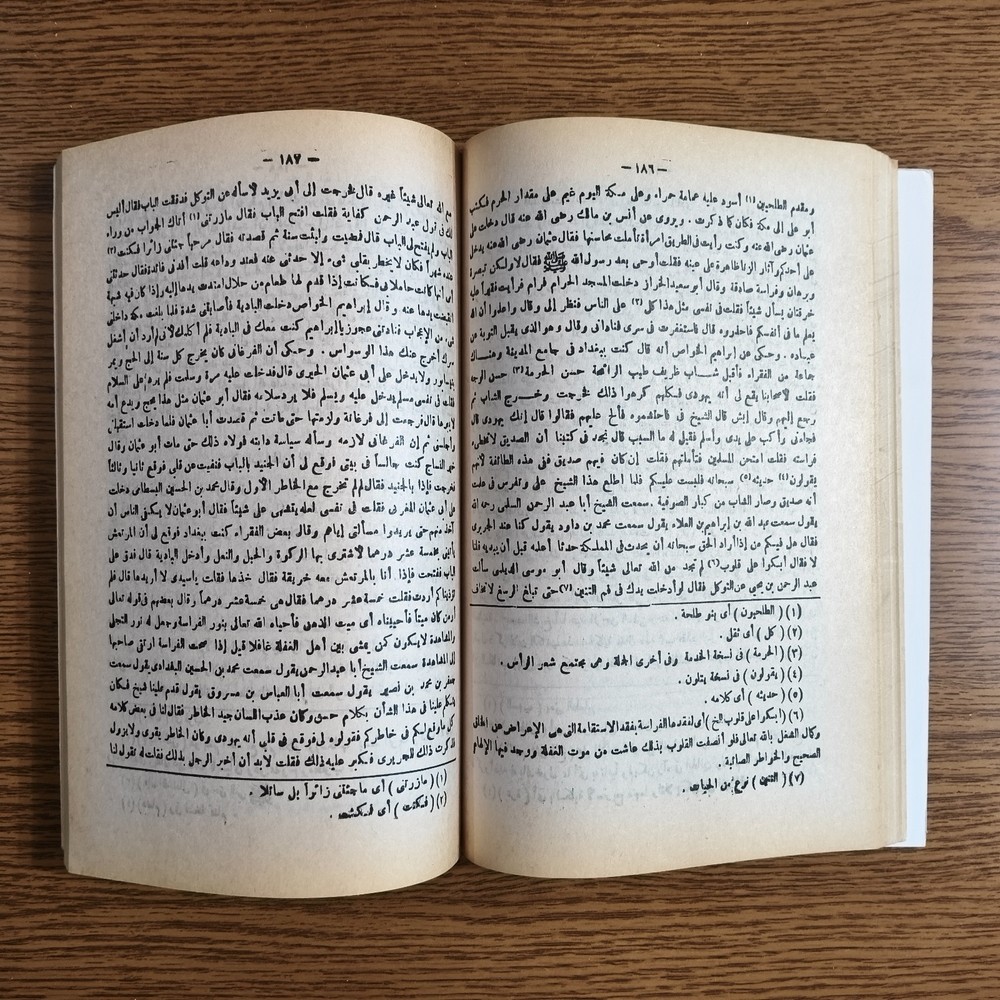 — ١٨٦ —
ومقدم الطلحيين (١) أسود عليه عمامة حمراء وعلى مكة اليوم غيم على مقدار الحرم فكتب
أبو على الى مكة فكان كما ذكرت . ويروى عن أنس بن مالك رضى الله عنه قال دخلت على
عثمان رضى الله عنه وكنت رأيت فى الطريق امرأة تأملت محاسنها فقال عثمان رضى الله عنه يدخل
على أحدكم وآثار الزنا ظاهرة على عينه فقلت أوحى بعد رسول الله ﷺ فقال لا ولكن تبصرة
وبرهان وفراسة صادقة وقال أبو سعيد الخراز دخلت المسجد الحرام فرأيت فقيرا عليه
خرقتان يسأل شيئاً فقلت فى نفسى مثل هذا كل (٢) على الناس فنظر إلى وقال واعلموا أن الله
يعلم ما فى أنفسكم فاحذروه قال فاستغفرت فى سرى فنادانى وقال وهو الذى يقبل التوبة عن
عباده . وحكى عن ابراهيم الخواص أنه قال كنت ببغداد فى جامع المدينة وهناك
جماعة من الفقراء فأقبل شاب ظريف طيب الرائحة حسن الحرمة (٣) حسن الوجه
فقلت لأصحابنا يقع لى أنه يهودى فكلهم كرهوا ذلك فخرجت وخرج الشاب ثم
رجع إليهم وقال إيش قال الشيخ فى فاحتشموه فألح عليهم فقالوا قال إنك يهودى قال
فجاءنى وأكب على يدى وأسلم فقيل له ما السبب قال نجد فى كتبنا أن الصديق لا تخطىء
فراسته فقلت امتحن المسلمين فتأملتهم فقلت إن كان فيهم صديق ففى هذه الطائفة لأنهم
يقولون (٤) حديثه (٥) سبحانه فلبست عليكم فلما اطلع هذا الشيخ على وتفرس فى علمت
أنه صديق وصار الشاب من كبار الصوفية . سمعت الشيخ أبا عبد الرحمن السلمى رحمه الله
يقول سمعت عبد الله بن إبراهيم بن العلاء يقول سمعت محمد بن داود يقول كنا عند الجريرى
فقال هل فيكم من إذا أراد الحق سبحانه أن يحدث فى المملكة حدثا أعلمه قبل أن يبديه قلنا
لا فقال أبكوا على قلوب (٦) لم تجد من الله تعالى شيئاً وقال أبو موسى الديلمى سألت
عبد الرحمن بن يحيى عن التوكل فقال لو أدخلت يدك فى فم التنين (٧) حتى تبلغ الرسغ لا تخاف
(١) ( الطلحيون ) أى بنو طلحة .
(٢) ( كل ) أى ثقل .
(٣) ( الحرمة ) فى نسخة الخدمة وفى أخرى الجملة وهى مجتمع شعر الرأس .
(٤) ( يقولون ) فى نسخة يتلون .
(٥) ( حديثه ) أى كلامه .
(٦) ( ابكوا على قلوب الخ ) أى لفقدها الفراسة بفقد الاستقامة التى هى الإعراض عن الخلق
وكال الشغل بالله تعالى فلو أنصفت القلوب بذلك عاشت من موت الغفلة ووجد فيها الإلهام
الصحيح والخواطر الصائبة .
(٧) ( التنين ) نوع من الحيات .
— ١٨٧ —
مع الله تعالى شيئاً غيره قال فخرجت إلى أبى يزيد لأسأله عن التوكل فدققت الباب فقال أليس
لك فى قول عبد الرحمن كفاية فقلت افتح الباب فقال مازرتنى (١) أتاك الجواب من وراء
الباب ولم يفتح لى الباب قال فمضيت ولبثت سنة ثم قصدته فقال مرحباً جئتنى زائرا فمكثت (٢)
عنده شهراً فكان لا يخطر بقلبى شىء إلا حدثنى عنه فعند وداعه قلت أفدنى فائدة فقال حدثتنى
أمى أنها كانت حاملا بى فكانت إذا قدم لها طعام من حلال امتدت يدها إليه وإذا كان فيه شبهة
انقبضت يدها عنه . وقال إبراهيم الخواص دخلت البادية فأصابتنى شدة فلما بلغت مكة داخلنى
شىء من الإعجاب فنادتنى عجوز يا إبراهيم كنت معك فى البادية فلم أكلمك لأنى لم أرد أن أشغل
سرك أخرج عنك هذا الوسواس . وحكى أن الفرغانى كان يخرج كل سنة إلى الحج ويمر
بنيسابور ولا يدخل على أبى عثمان الحيرى قال فدخلت عليه مرة وسلمت فلم يرد على السلام
فقلت فى نفسى مسلم يدخل عليه ويسلم فلا يرد سلامه فقال أبو عثمان مثل هذا يحج ويدع أمه
لا يبرها قال فرجعت إلى فرغانة ولازمتها حتى ماتت ثم قصدت أبا عثمان فلما دخلت استقبلنى
وأجلسنى ثم إن الفرغانى لازمه وسأله سياسة دابته فولاه ذلك حتى مات أبو عثمان وقال
خير النساج كنت جالساً فى بيتى فوقع لى أن الجنيد بالباب فنفيت عن قلبى فوقع ثانيا وثالثاً
فخرجت فإذا بالجنيد فقال لم لم تخرج مع الخاطر الأول وقال محمد بن الحسين البسطامى دخلت
على أبى عثمان المغربى فقلت فى نفسى لعله يتشهى على شيئاً فقال أبو عثمان لا يكفى الناس أن
آخذ منهم حتى يريدوا مسألتى إياهم وقال بعض الفقراء كنت ببغداد فوقع لى أن المرتعش
يأتينى بخمسة عشر درهما لأشترى بها الركوة والحبل والنعل وأدخل البادية قال فدق على
الباب ففتحت فإذا أنا بالمرتعش معه خريقة فقال خذها فقلت ياسيدى لا أريدها قال فلم
تؤذينا كم أردت فقلت خمسة عشر درهما فقال هى خمسة عشر درهماً وقال بعضهم فى قوله تعالى
أو من كان ميتاً فأحييناه أى ميت الذهن فأحياه الله تعالى بنور الفراسة وجعل له نور التجلى
والمشاهدة لا يكون كمن يمشى بين أهل الغفلة غافلا قيل إذا صحت الفراسة ارتقى صاحبها
إلى المشاهدة سمعت الشيخ أبا عبد الرحمن يقول سمعت محمد بن الحسين البغدادى يقول سمعت
جعفر بن محمد بن نصير يقول سمعت أبا العباس بن مسروق يقول قدم علينا شيخ فكان
يتكلم علينا فى هذا الشأن بكلام حسن وكان عذب اللسان جيد الخاطر فقال لنا فى بعض كلامه
كل ما وقع لكم فى خاطركم فقولوه لى فوقع فى قلبى أنه يهودى وكان الخاطر يقوى ولا يزول
فذكرت ذلك للجريرى فكبر عليه ذلك فقلت لا بد أن أخبر الرجل بذلك فقلت له تقول لنا
(١) ( مازرتنى ) أى ماجئتنى زائراً بل سائلا .
(٢) ( فمكثت ) أى فمكثت .